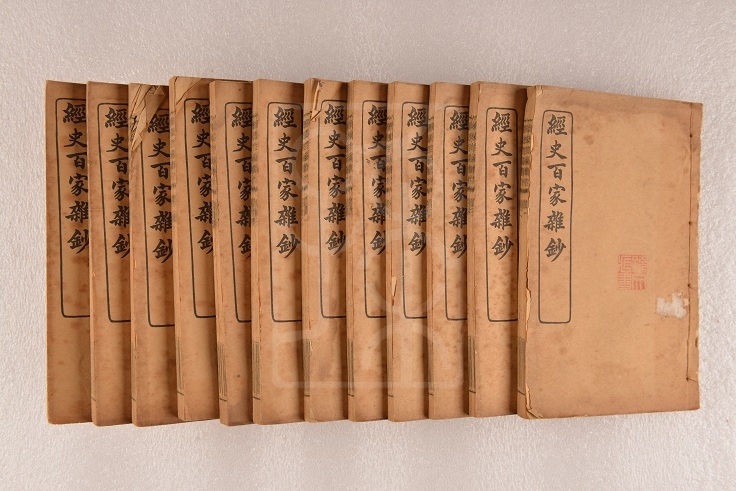 經史百家雜鈔
經史百家雜鈔
經史百家雜鈔
經史百家雜鈔
經史百家雜鈔
經史百家雜鈔
經史百家雜鈔
經史百家雜鈔
經史百家雜鈔
經史百家雜鈔
經史百家雜鈔
經史百家雜鈔